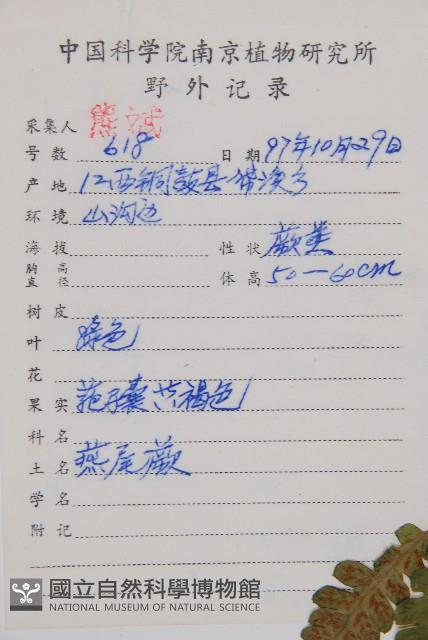 中国科学院南京植物研究所
野外记录
采集人 熊诚
号数 618 日期 97年10月29日
产地 江西铜鼓县
环境 山沟边
海拔 性状 蕨类
胸高直径 体高 50—60cm
树皮
叶 绿色
花
果实 孢子囊 褐色
科名
土名 燕尾蕨
学名
附记
國立自然科學博物館
NATIONAL MUSEUM OF NATURAL SCIENCE